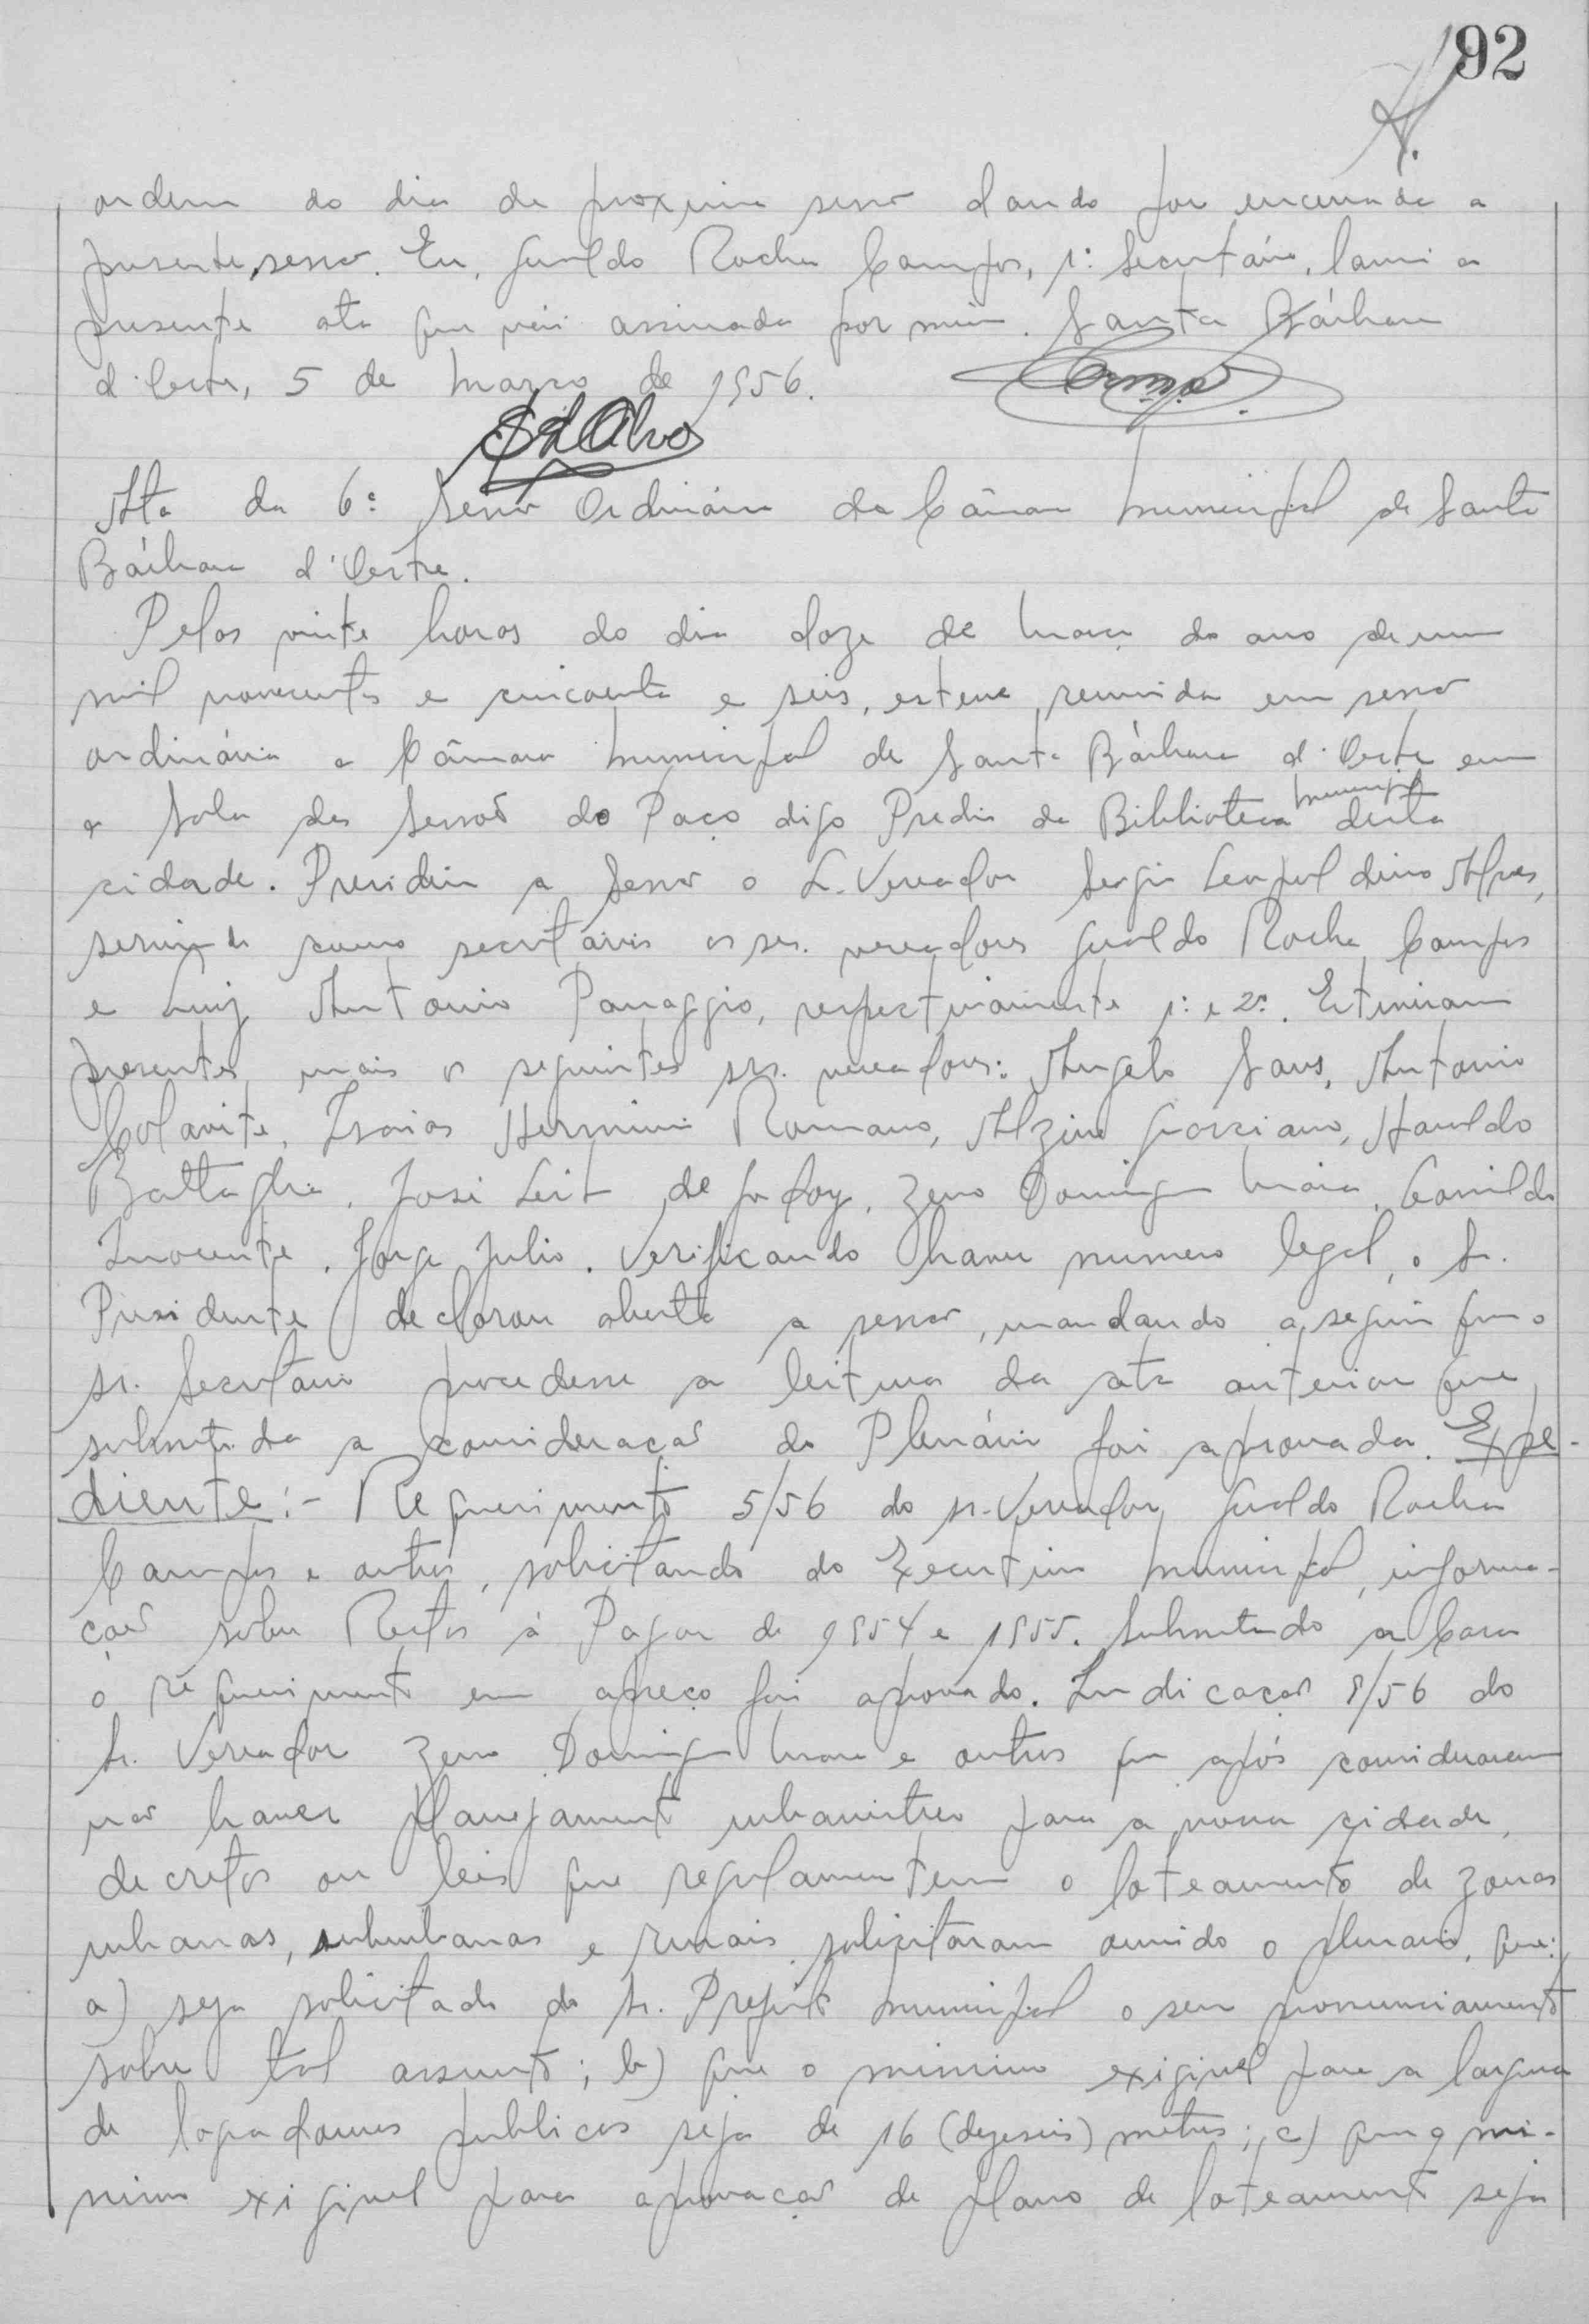 92
ordem do dia da proxima sessão dando por encerrada a
presente sessão. Eu, Gualdo Rocha Campos, 1º Secretário, lavrei a
presente ata que vai assinada por mim. Santa Bárbara
d'Oeste, 5 de Março de 1956.
Ata da 6ª Sessão Ordinária da Câmara Municipal de Santa
Bárbara d'Oeste.
Pelas vinte horas do dia doze de Março do ano de um
mil novecentos e cincoenta e seis, esteve reunida em sessão
ordinária a Câmara Municipal de Santa Bárbara d'Oeste em
a Sala das Sessões do Paço digo Predio da Biblioteca Municipal desta
cidade. Presidiu a Sessão o Sr. Vereador Sergio Leopoldino Alves,
servindo como secretários os srs. vereadores Gualdo Rocha Campos
e Luiz Antonio Panaggio, respectivamente 1º e 2º. Estiveram
presentes mais os seguintes srs. vereadores: Angelo Sans, Antonio
Colavite, Isaias Herminio Romano, Alzino Graciano, Haroldo
Battaglia, José Leite de Godoy, Zeno Domingos Maia, Leonildo
Inocente, Jorge Julio. Verificando haver numero legal, o Sr.
Presidente declarou aberta a sessão, mandando a seguir que o
sr. Secretario procedesse a leitura da ata anterior que
submetida a consideração do Plenário foi aprovada. Expe-
diente:- Requerimento 5/56 do sr. Vereador Gualdo Rocha
Campos e outros, solicitando do Executivo Municipal, informa-
ções sobre Restos à Pagar de 1954 e 1955. Submetendo a Casa
o requerimento em apreço foi aprovado. Indicação 8/56 do
Sr. Vereador Zeno Domingos Maia e outros que após considerarem
não haver planejamento urbanistico para a nossa cidade,
decretos ou leis que regulamentem o loteamento de zonas
urbanas, suburbanas e rurais, solicitaram ouvido o plenario, que:
a) seja solicitado do Sr. Prefeito Municipal o seu pronunciamento
sobre tal assunto; b) que o minimo exigivel para a largura
de logradouros publicos seja de 16 (dezeseis) metros; c) que o mi-
nimo exigivel para aprovação de plano de loteamento seja